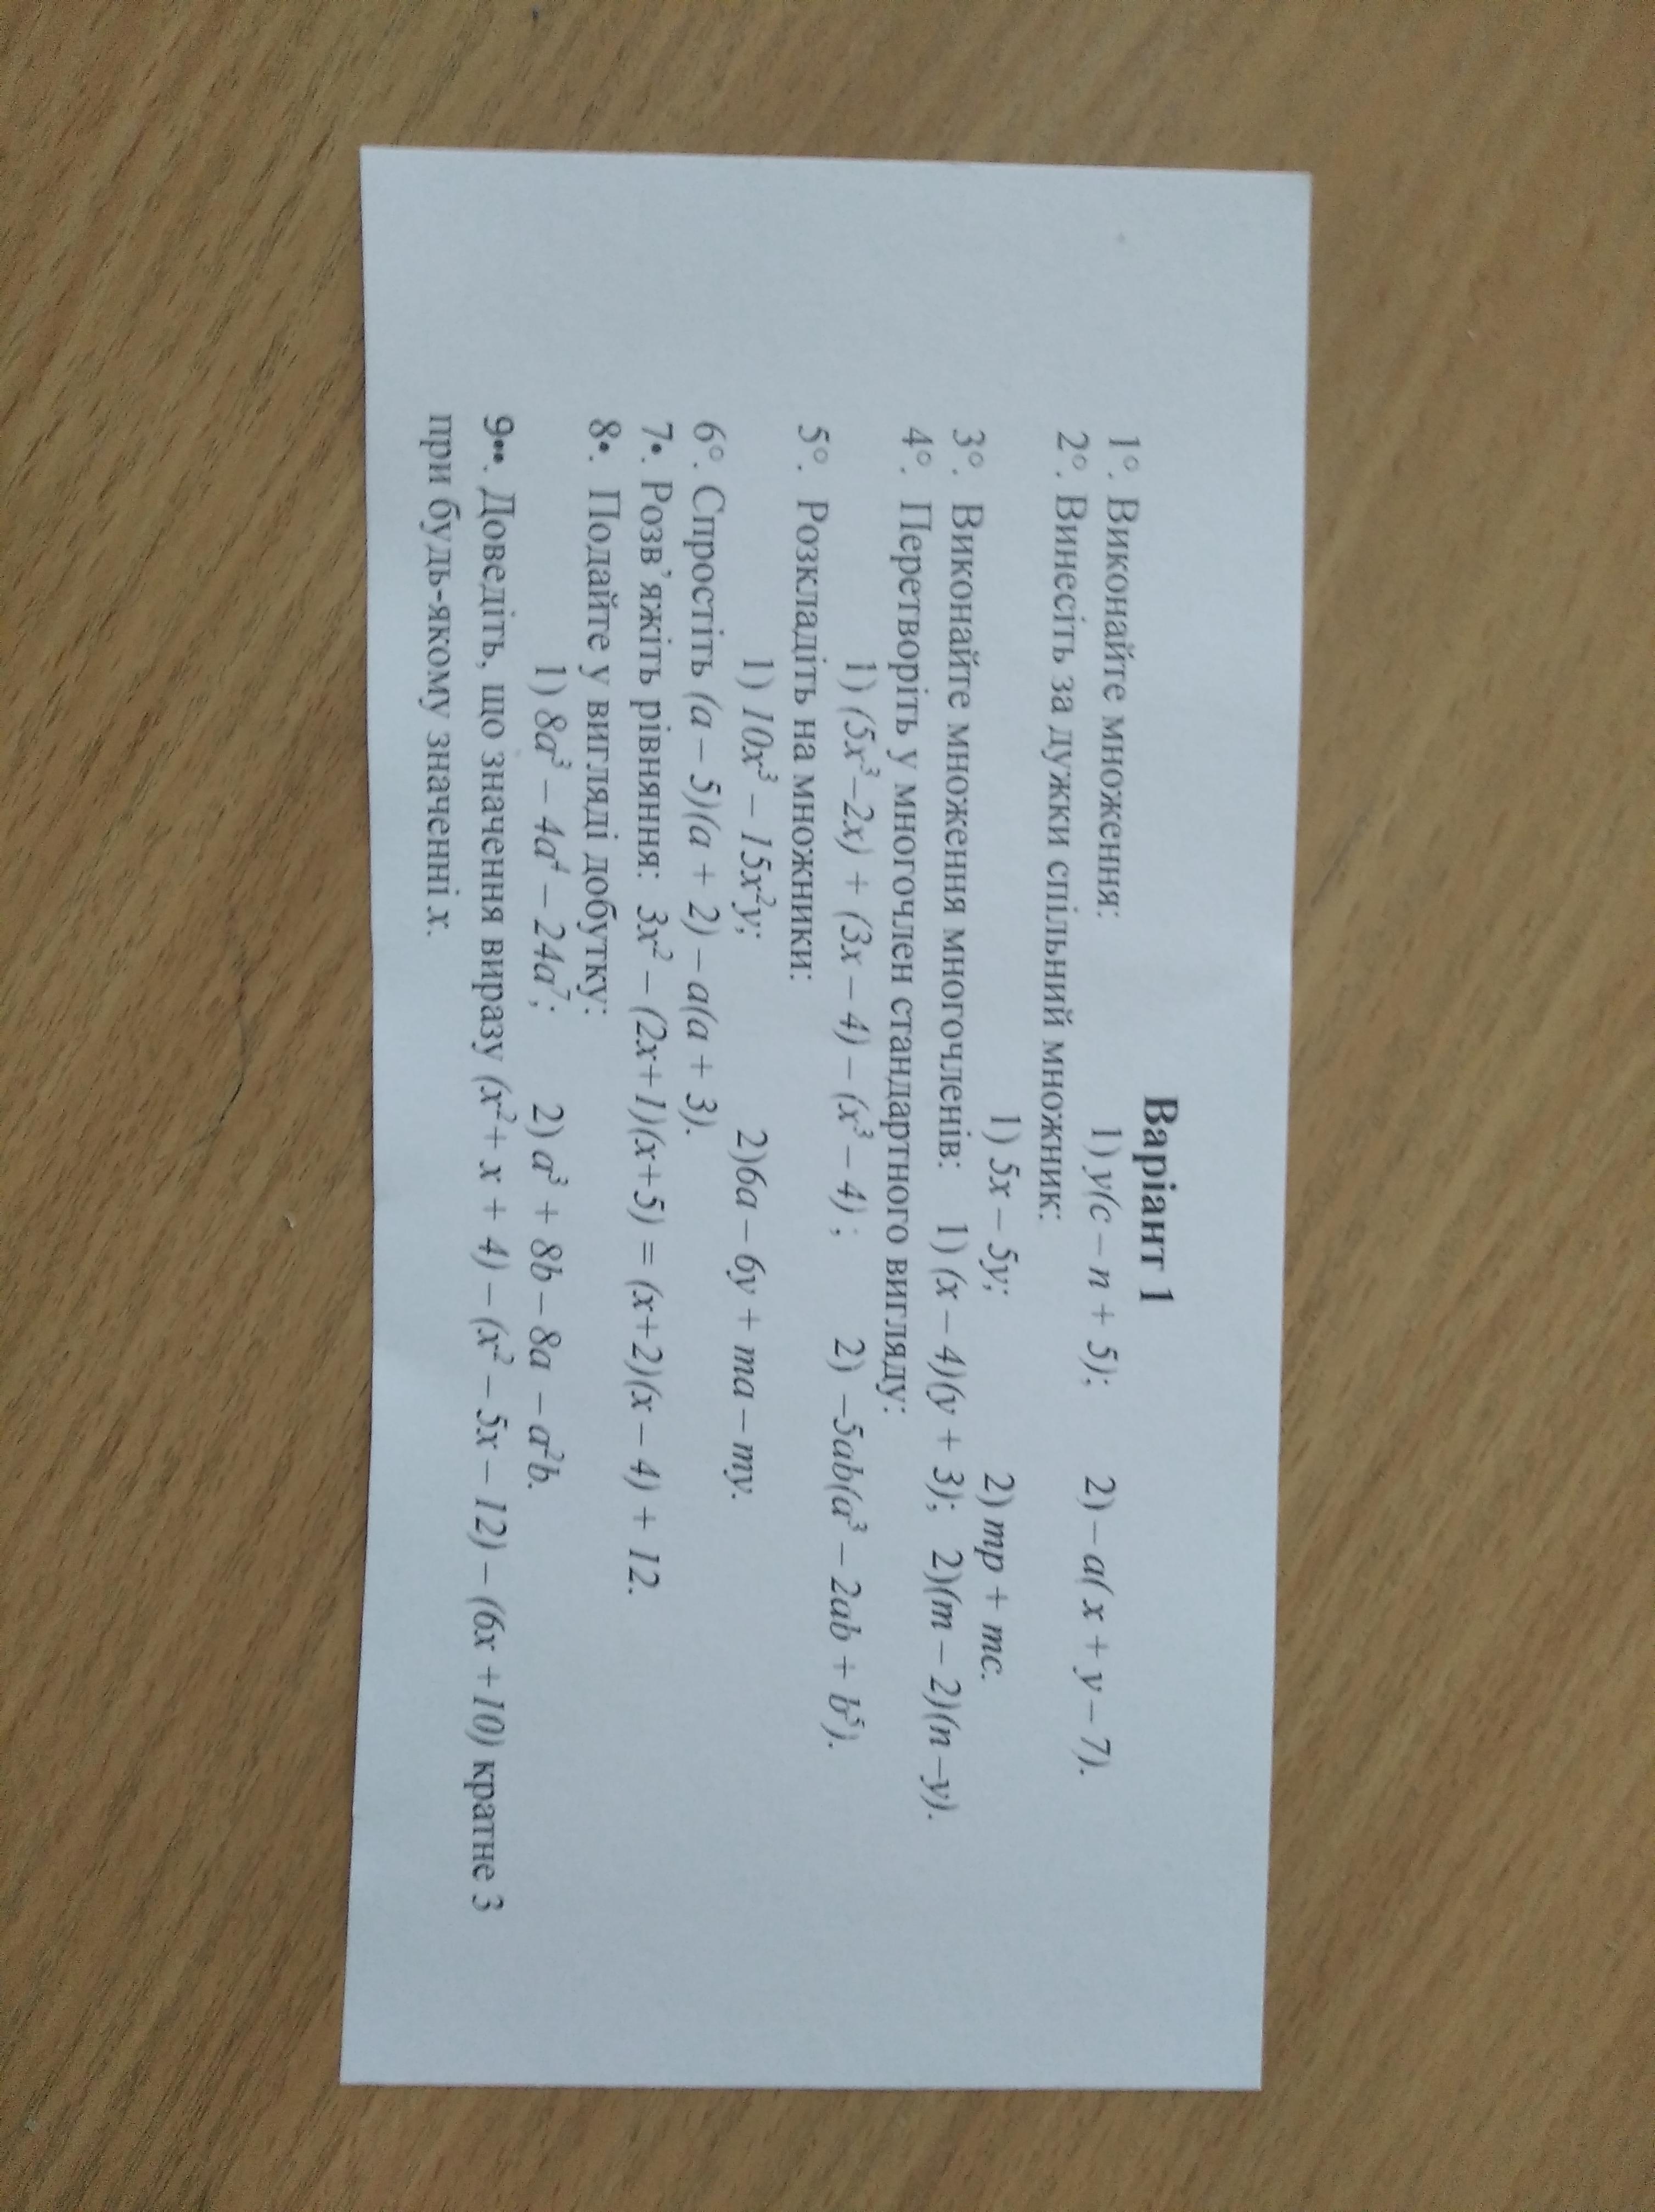 Варіант 1
1°. Виконайте множення: 1) y(c – n + 5); 2) – a( x + y – 7).
2°. Винесіть за дужки спільний множник:
1) 5x – 5y; 2) mp + mc.
3°. Виконайте множення многочленів: 1) (x – 4)(y + 3); 2)(m – 2)(n –y).
4°. Перетворіть у многочлен стандартного вигляду:
1) (5x³–2x) + (3x – 4) – (x³ – 4) ; 2) –5ab(a³ – 2ab + b⁵).
5°. Розкладіть на множники:
1) 10x³ – 15x²y; 2)6a – 6y + ma – my.
6°. Спростіть (a – 5)(a + 2) – a(a + 3).
7•. Розв’яжіть рівняння: 3x² – (2x+1)(x+5) = (x+2)(x – 4) + 12.
8•. Подайте у вигляді добутку:
1) 8a³ – 4a⁴ – 24a⁷; 2) a³ + 8b – 8a – a²b.
9••. Доведіть, що значення виразу (x²+ x + 4) – (x² – 5x – 12) – (6x +10) кратне 3
при будь-якому значенні x.